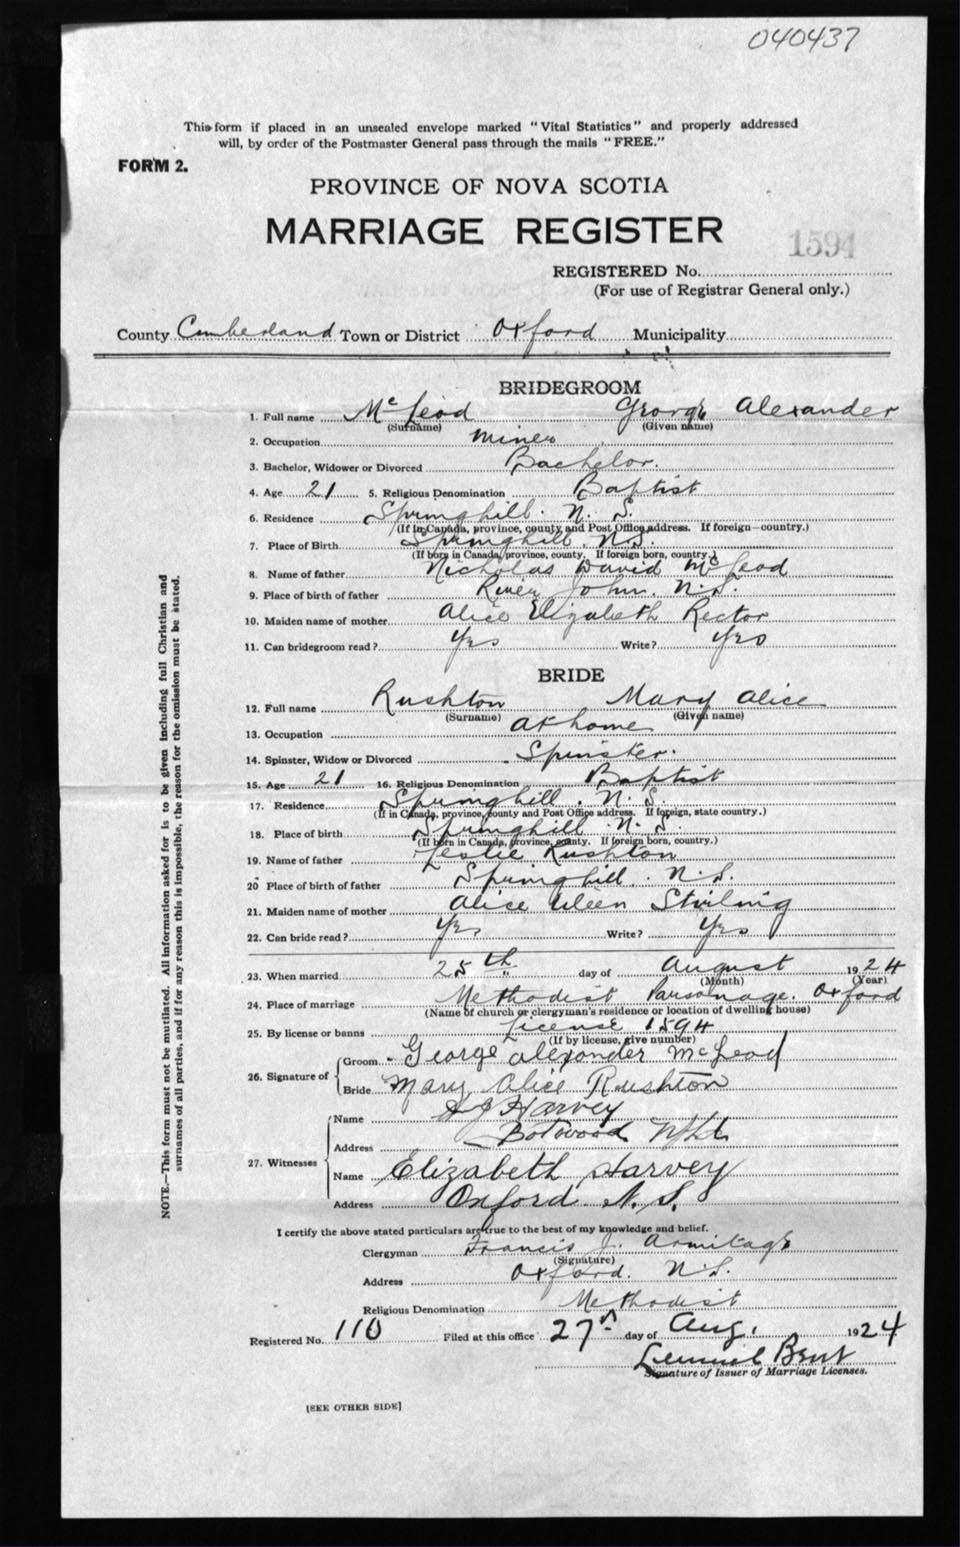 040437
This form if placed in an unsealed envelope marked "Vital Statistics" and properly addressed
will, by order of the Postmaster General pass through the mails "FREE."
FORM 2.
PROVINCE OF NOVA SCOTIA
MARRIAGE REGISTER
1594
REGISTERED No.
(For use of Registrar General only.)
County Cumberland Town or District Oxford Municipality
BRIDEGROOM
1. Full name McLeod George Alexander
(Surname) (Given name)
2. Occupation miner
3. Bachelor, Widower or Divorced Bachelor.
4. Age 21 5. Religious Denomination Baptist
6. Residence Springhill. N. S.
(If in Canada, province, county and Post Office address. If foreign—country.)
7. Place of Birth Springhill. N.S.
(If born in Canada, province, county. If foreign born, country.)
8. Name of father Nicholas David McLeod
9. Place of birth of father River John. N.S.
10. Maiden name of mother Alice Elizabeth Rector
11. Can bridegroom read? Yes Write? Yes
BRIDE
12. Full name Rushton Mary Alice
(Surname) (Given name)
13. Occupation at home
14. Spinster, Widow or Divorced Spinster.
15. Age 21 16. Religious Denomination Baptist
17. Residence Springhill. N. S.
(If in Canada, province, county and Post Office address. If foreign, state country.)
18. Place of birth Springhill N. S.
(If born in Canada, province, county. If foreign born, country.)
19. Name of father Leslie Rushton
20 Place of birth of father Springhill. N.S.
21. Maiden name of mother Alice Stirling
22. Can bride read? Yes Write? Yes
23. When married 25th day of August 1924
(Month) (Year)
24. Place of marriage Methodist Parsonage. Oxford
(Name of church or clergyman's residence or location of dwelling house)
25. By license or banns License 1594
(If by license, give number)
26. Signature of Groom George Alexander McLeod
Bride Mary Alice Rushton
27. Witnesses
Name Harvey
Address Botwood Nfld
Name Elizabeth Harvey
Address Oxford N. S.
I certify the above stated particulars are true to the best of my knowledge and belief.
Clergyman Francis J. Armitage
(Signature)
Address Oxford. N.S.
Religious Denomination Methodist
Registered No. 110 Filed at this office 27th day of Aug. 1924
Lemuel Bent
Signature of Issuer of Marriage Licenses.
[SEE OTHER SIDE]
NOTE.—This form must not be mutilated. All information asked for is to be given including full Christian and
surnames of all parties, and if for any reason this is impossible, the reason for the omission must be stated.